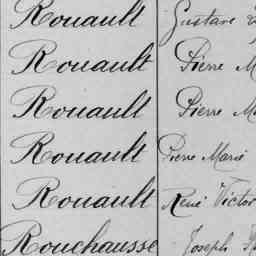 Rouault Gustave
Rouault Pierre M
Rouault Pierre M
Rouault Pierre Marie
Rouault René Victor
Rouchausse Joseph